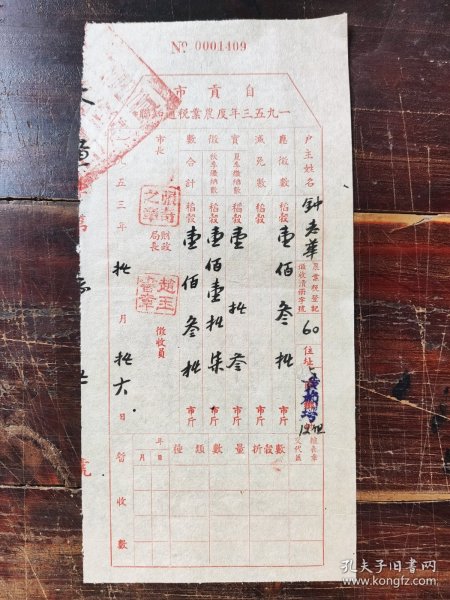 No 0001409
自貢市
一九五三年度農業稅通知聯
户主姓名 鈡志華 農業稅登記徵收清册字號 60 住址
應徵數 稻穀 壹佰叁拾 市斤
減免數 稻穀 市斤
實徵 夏季繳納數 稻穀 壹拾叁 市斤
秋季繳納數 稻穀 壹佰壹拾柒 市斤
數合計 稻穀 壹佰叁拾 市斤
市長
財政局長
徵收員
五三年 拾 月 拾六 日
種類 數量 折穀數
年 月 日
暫收數
孔夫子旧书网
www.kongfz.com